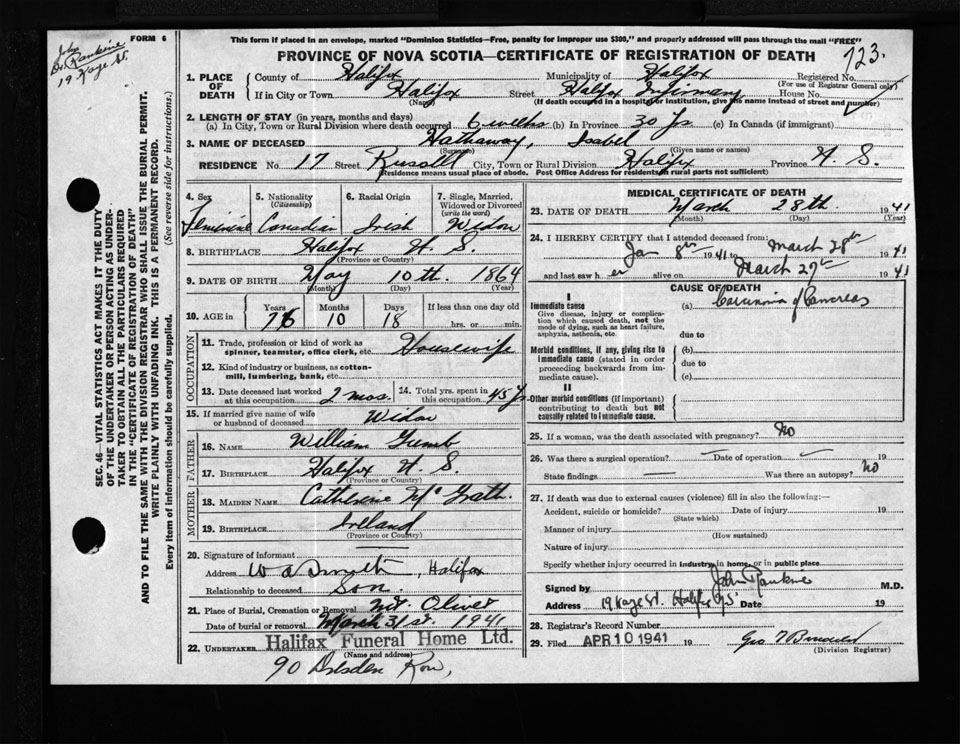 John
Dr. Rankine
19 Kaye St.
FORM 6
This form if placed in an envelope, marked "Dominion Statistics—Free, penalty for improper use $300," and properly addressed will pass through the mail "FREE"
PROVINCE OF NOVA SCOTIA—CERTIFICATE OF REGISTRATION OF DEATH
723
1. PLACE OF DEATH
County of Halifax Municipality of Halifax Registered No.
(For use of Registrar General only)
If in City or Town Halifax Street Halifax Infirmary House No.
(Name) (If death occurred in a hospital or institution, give the name instead of street and number)
2. LENGTH OF STAY (in years, months and days)
(a) In City, Town or Rural Division where death occurred 6 weeks (b) In Province 30 Yrs (c) In Canada (if immigrant)
3. NAME OF DECEASED Hathaway, Isabel
(Surname) (Given name or names)
RESIDENCE No. 17 Street Russell City, Town or Rural Division Halifax Province N. S.
(Residence means usual place of abode. Post Office Address for residents in rural parts not sufficient)
4. Sex Feminine
5. Nationality (Citizenship) Canadian
6. Racial Origin Irish
7. Single, Married, Widowed or Divorced (write the word) Widow
8. BIRTHPLACE Halifax N. S.
(Province or Country)
9. DATE OF BIRTH May 10th. 1864
(Month) (Day) (Year)
10. AGE in Years 76 Months 10 Days 18 If less than one day
hrs. or min.
OCCUPATION
11. Trade, profession or kind of work as spinner, teamster, office clerk, etc. Housewife
12. Kind of industry or business, as cotton-mill, lumbering, bank, etc.
13. Date deceased last worked at this occupation 2 mos. 14. Total yrs. spent in this occupation 45 Yrs
15. If married give name of wife or husband of deceased Widow
FATHER
16. NAME William Gumb
17. BIRTHPLACE Halifax N. S.
(Province or Country)
MOTHER
18. MAIDEN NAME Catherine McGrath.
19. BIRTHPLACE Ireland
(Province or Country)
20. Signature of informant
Address W A Smyth, Halifax
Relationship to deceased Son.
21. Place of Burial, Cremation or Removal Mt. Olivet
Date of burial or removal March 31st. 1941
22. UNDERTAKER Halifax Funeral Home Ltd.
(Name and address)
90 Dresden Row,
MEDICAL CERTIFICATE OF DEATH
23. DATE OF DEATH March 28th. 1941
(Month) (Day) (Year)
24. I HEREBY CERTIFY that I attended deceased from
Jan 8th 1941 to March 28th 1941
and last saw h er alive on March 27th 1941
CAUSE OF DEATH
I
Immediate cause
Give disease, injury or complication which caused death, not the mode of dying, such as heart failure, asphyxia, asthenia, etc.
(a) Carcinoma of Pancreas
due to
Morbid conditions, if any, giving rise to immediate cause (stated in order proceeding backwards from immediate cause).
(b)
due to
(c)
II
Other morbid conditions (if important) contributing to death but not causally related to immediate cause.
25. If a woman, was the death associated with pregnancy? No
26. Was there a surgical operation? — Date of operation 19
State findings — Was there an autopsy? No
27. If death was due to external causes (violence) fill in also the following:—
Accident, suicide or homicide? Date of injury 19
(State which)
Manner of injury
(How sustained)
Nature of injury
Specify whether injury occurred in industry, in home, or in public place
Signed by John Rankine M.D.
Address 19 Kaye St. Halifax NS Date 19
28. Registrar's Record Number
29. Filed APR 10 1941 19
(Division Registrar)
SEC. 46—VITAL STATISTICS ACT MAKES IT THE DUTY
OF THE UNDERTAKER OR PERSON ACTING AS UNDER-
TAKER TO OBTAIN ALL THE PARTICULARS REQUIRED
IN THE "CERTIFICATE OF REGISTRATION OF DEATH"
AND TO FILE THE SAME WITH THE DIVISION REGISTRAR WHO SHALL ISSUE THE BURIAL PERMIT.
WRITE PLAINLY WITH UNFADING INK. THIS IS A PERMANENT RECORD.
Every item of information should be carefully supplied. (See reverse side for instructions.)